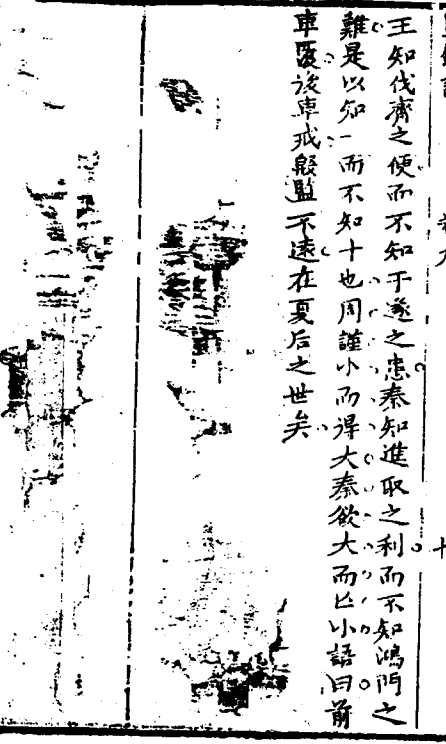 王知伐齊之便而不知干遂之患秦知進取之利而不知鴻門之
難是以知一而不知十也周謹小而得大秦欲大而亡小語曰前
車覆後車戒殷監不遠在夏后之世矣